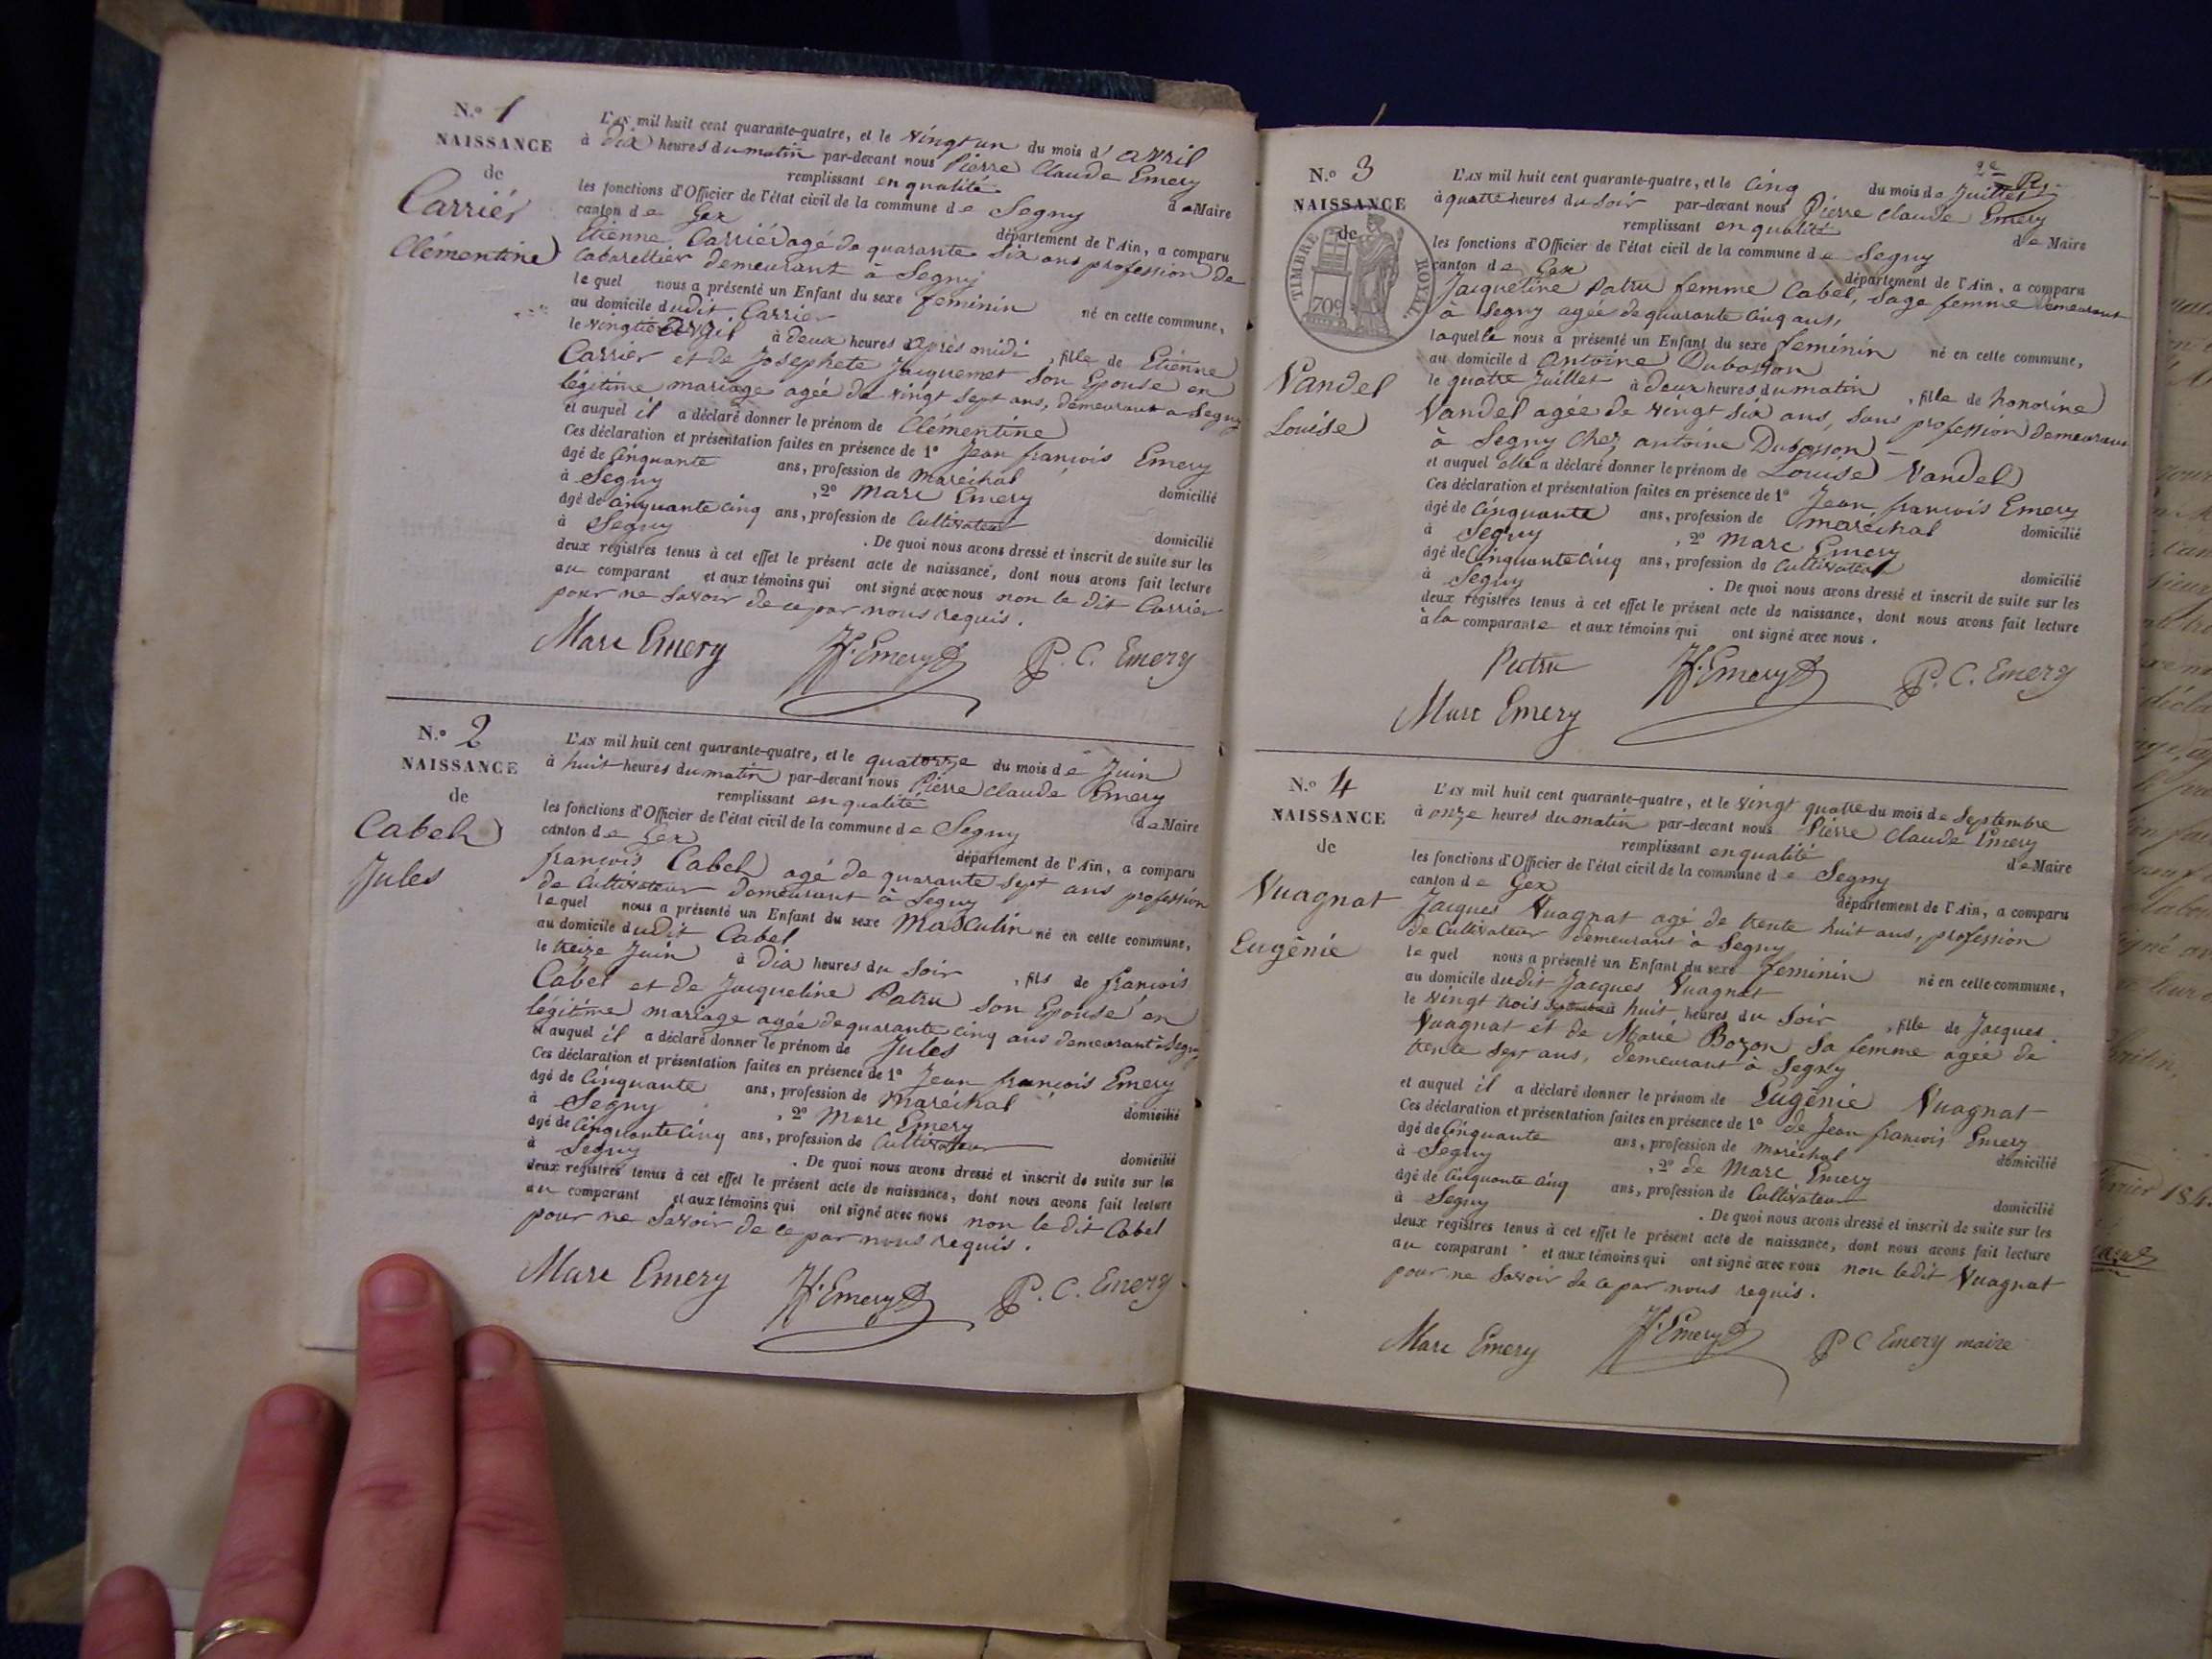 N.o 1
NAISSANCE
de
Carrier
Clémentine
L'AN mil huit cent quarante-quatre, et le vingt un du mois d' avril
à dix heures du matin par-devant nous Pierre Claude Emery
remplissant en qualité de Maire
les fonctions d'Officier de l'état civil de la commune de Segny
canton de Gex département de l'Ain, a comparu
Etienne Carrier agé de quarante six ans profession de
Cabarettier demeurant à Segny
lequel nous a présenté un Enfant du sexe feminin né en cette commune,
au domicile dudit Carrier
le vingt avril à deux heures après midi , fille de Etienne
Carrier et de Josephete Jacquemet son Epouse en
légitime mariage agée de vingt sept ans, demeurant a Segny
et auquel il a déclaré donner le prénom de Clémentine
Ces déclaration et présentation faites en présence de 1° Jean françois Emery
âgé de Cinquante ans, profession de maréchal domicilié
à Segny , 2° Marc Emery
âgé de cinquante cinq ans, profession de Cultivateur domicilié
à Segny . De quoi nous avons dressé et inscrit de suite sur les
deux registres tenus à cet effet le présent acte de naissance, dont nous avons fait lecture
au comparant et aux témoins qui ont signé avec nous non le dit Carrier
pour ne savoir de ce par nous requis.
Marc Emery Jf. Emery P. C. Emery
N.o 2
NAISSANCE
de
Cabel
Jules
L'AN mil huit cent quarante-quatre, et le quatorze du mois de Juin
à huit heures du matin par-devant nous Pierre claude Emery
remplissant en qualité de Maire
les fonctions d'Officier de l'état civil de la commune de Segny
canton de Gex département de l'Ain, a comparu
françois Cabel agé de quarante sept ans profession
de Cultivateur demeurant à Segny
lequel nous a présenté un Enfant du sexe Masculin né en cette commune,
au domicile dudit Cabel
le treize Juin à dix heures du Soir , fils de françois
Cabel et de Jacqueline Patru son Epouse en
légitime mariage agée de quarante cinq ans demeurant à Segny
et auquel il a déclaré donner le prénom de Jules
Ces déclaration et présentation faites en présence de 1° Jean françois Emery
âgé de Cinquante ans, profession de maréchal domicilié
à Segny , 2° Marc Emery
âgé de Cinquante Cinq ans, profession de Cultivateur domicilié
à Segny . De quoi nous avons dressé et inscrit de suite sur les
deux registres tenus à cet effet le présent acte de naissance, dont nous avons fait lecture
au comparant et aux témoins qui ont signé avec nous non le dit Cabel
pour ne savoir de ce par nous requis.
Marc Emery Jf. Emery P. C. Emery
N.o 3
NAISSANCE
de
TIMBRE ROYAL
70c
Vandel
Louise
L'AN mil huit cent quarante-quatre, et le Cinq du mois de Juillet
à quatre heures du Soir par-devant nous Pierre claude Emery
remplissant en qualité de Maire
les fonctions d'Officier de l'état civil de la commune de Segny
canton de Gex département de l'Ain, a comparu
Jacqueline Patru femme Cabel, Sage femme demeurant
à Segny agée de quarante cinq ans,
laquelle nous a présenté un Enfant du sexe feminin né en cette commune,
au domicile d'Antoine Dubosson
le quatre Juillet à deux heures du matin , fille de honorine
Vandel agée de vingt six ans, sans profession demeurant
à Segny chez antoine Dubosson
et auquel elle a déclaré donner le prénom de Louise Vandel
Ces déclaration et présentation faites en présence de 1° Jean françois Emery
âgé de Cinquante ans, profession de maréchal domicilié
à Segny , 2° Marc Emery
âgé de Cinquante Cinq ans, profession de Cultivateur domicilié
à Segny . De quoi nous avons dressé et inscrit de suite sur les
deux registres tenus à cet effet le présent acte de naissance, dont nous avons fait lecture
à la comparante et aux témoins qui ont signé avec nous.
Patru Jf. Emery P. C. Emery
Marc Emery
N.o 4
NAISSANCE
de
Vuagnat
Eugénie
L'AN mil huit cent quarante-quatre, et le vingt quatre du mois de Septembre
à onze heures du matin par-devant nous Pierre Claude Emery
remplissant en qualité de Maire
les fonctions d'Officier de l'état civil de la commune de Segny
canton de Gex département de l'Ain, a comparu
Jacques Vuagnat agé de trente huit ans, profession
de Cultivateur demeurant à Segny
lequel nous a présenté un Enfant du sexe feminin né en cette commune,
au domicile dudit Jacques Vuagnat
le vingt trois Septembre huit heures du Soir , fille de Jacques
Vuagnat et de Marie Bozon sa femme agée de
trente sept ans, demeurant à Segny
et auquel il a déclaré donner le prénom de Eugénie Vuagnat
Ces déclaration et présentation faites en présence de 1° de Jean françois Emery
âgé de Cinquante ans, profession de maréchal domicilié
à Segny , 2° de Marc Emery
âgé de Cinquante cinq ans, profession de Cultivateur domicilié
à Segny . De quoi nous avons dressé et inscrit de suite sur les
deux registres tenus à cet effet le présent acte de naissance, dont nous avons fait lecture
au comparant et aux témoins qui ont signé avec nous non ledit Vuagnat
pour ne savoir de ce par nous requis.
Marc Emery Jf. Emery P C Emery maire